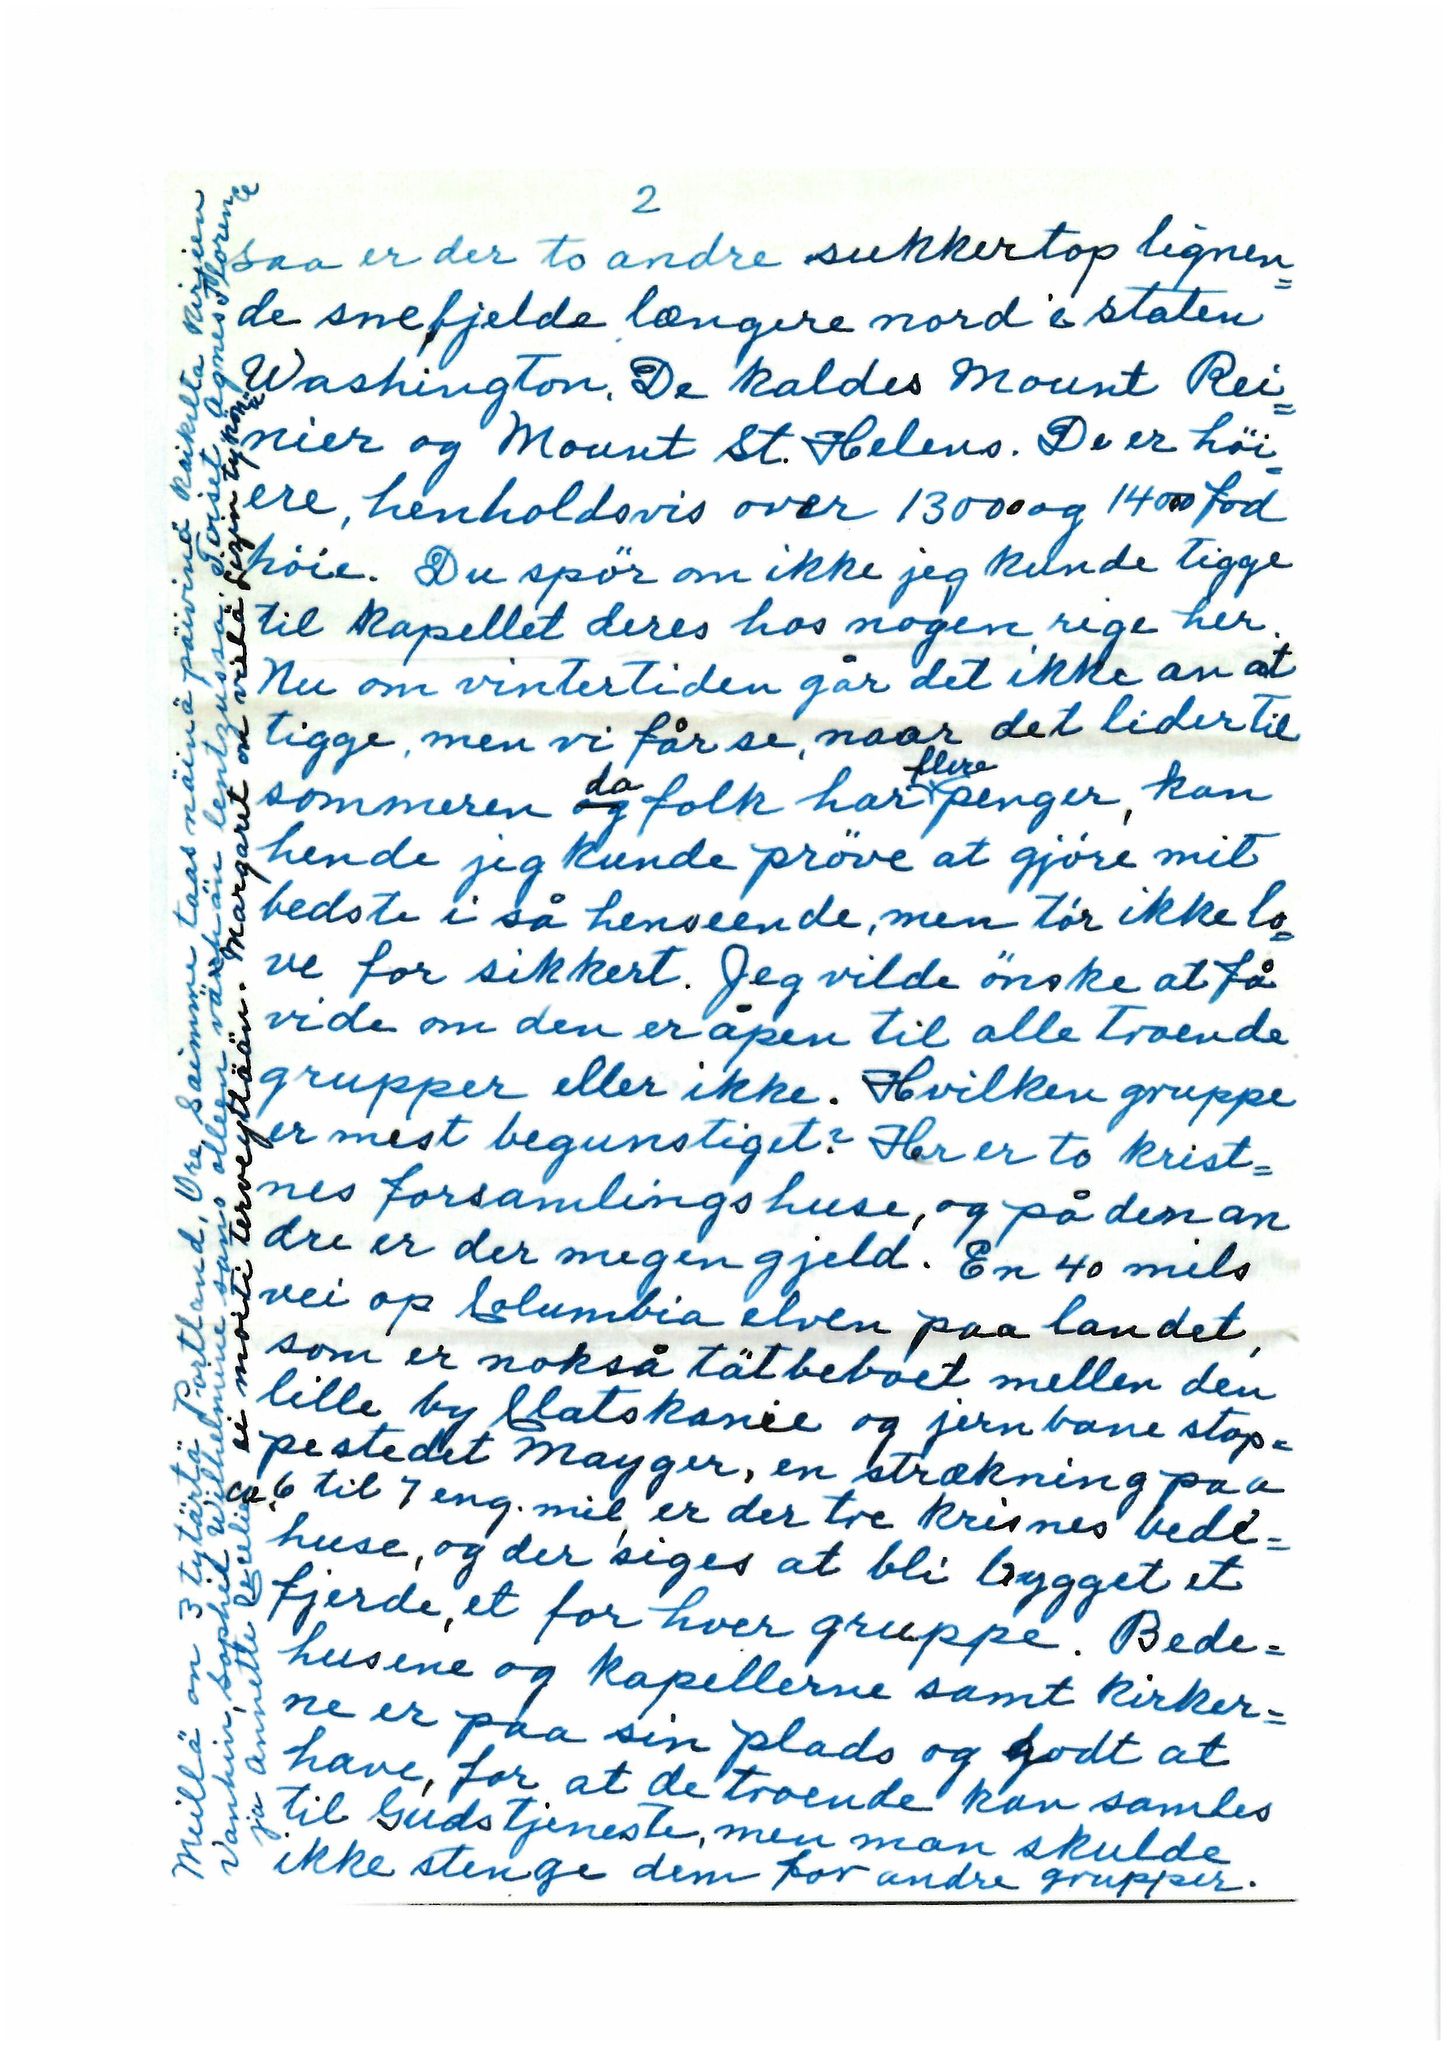 2
saa er der to andre sukkertop lignen=
de snefjelde længere nord i staten
Washington. De kaldes Mount Rei=
nier og Mount St. Helens. De er höi=
ere, henholdsvis over 13000 og 14000 fod
höie. Du spör om ikke jeg kunde tigge
til kapellet deres hos nogen rige her.
Nu om vintertiden går det ikke an at
tigge, men vi får se, naar det lider til
sommeren og da folk har flere penger, kan
hende jeg kunde pröve at gjöre mit
bedste i så henseende, men tör ikke lo=
ve for sikkert. Jeg vilde önske at få
vide om den er åpen til alle troende
grupper eller ikke. Hvilken gruppe
er mest begunstiget? Her er to krist=
nes forsamlingshuse, og på den an
dre er der megen gjeld. En 40 mils
vei op Columbia elven paa landet,
som er nokså tätbeboet mellen den
lille by Clatskanie og jernbane stop=
pestedet Mayger, en strækning paa
ca. 6 til 7 eng. mil, er der tre krisnes bede=
huse, og der siges at bli bygget et
fjerde, et for hver gruppe. Bede=
husene og kapellerne samt kirker=
ne er paa sin plads og godt at
have, for at de troende kan samles
til Gudstjeneste, men man skulde
ikke stenge dem for andre grupper.
Meillä on 3 tytärtä Portland, Ore. Saimme taas näinä päivinä kaikilta kirjeen
Vanhin, Sophie Wilhelmine sans olleen vähän lentzussa. Toiset Agnes Florence
ja Annette Cecelie ei moiti terveyttään. Margaret on vielä Luzin tykönä